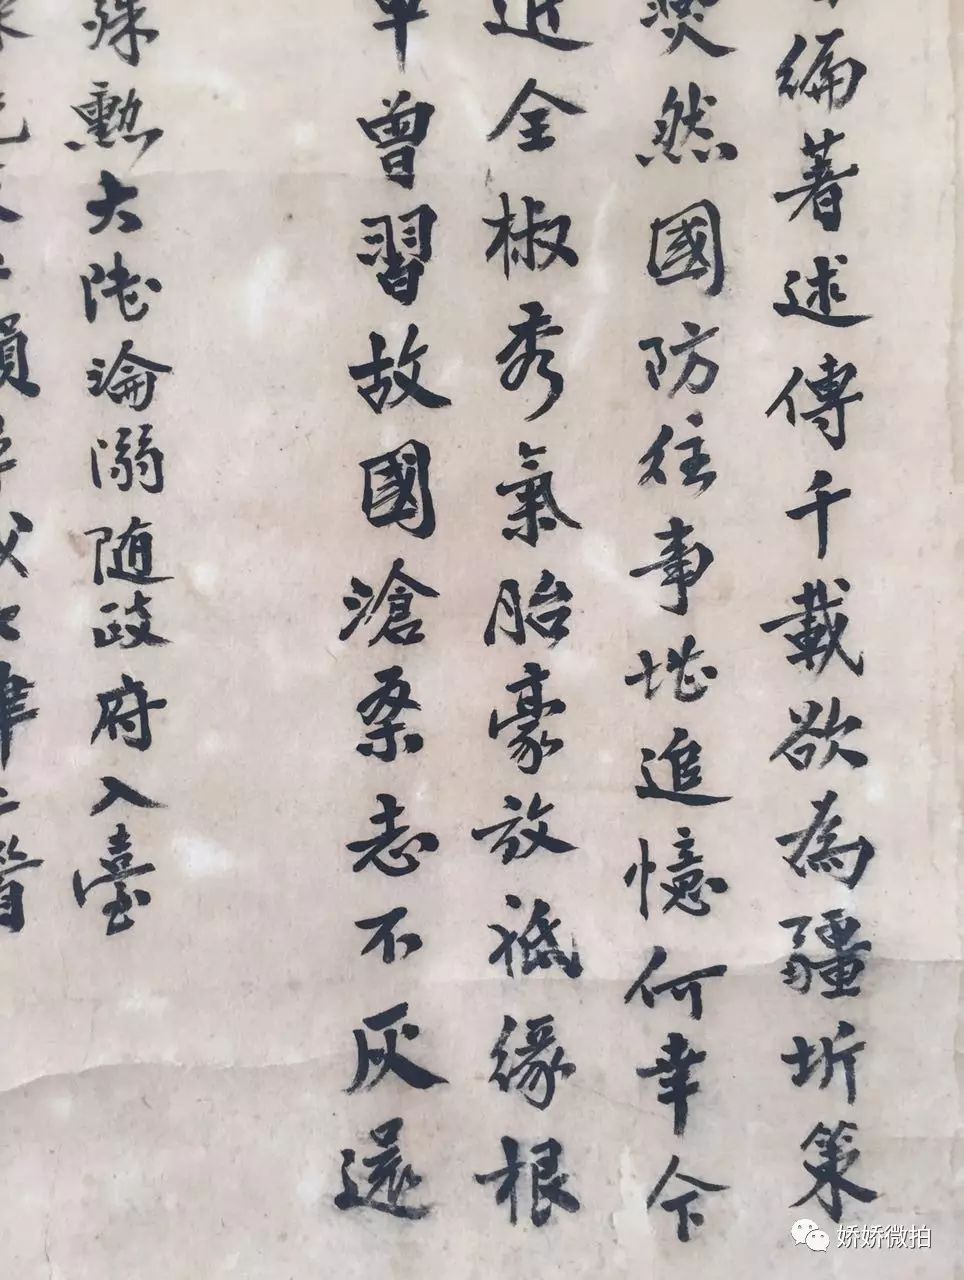 編著述傳千載欲為疆圻策
然國防往事堪追憶何幸今
近全椒秀氣胎豪放祇緣根
曾習故國滄桑志不灰還
殊勲大陸淪溺随政府入臺
娇娇微拍